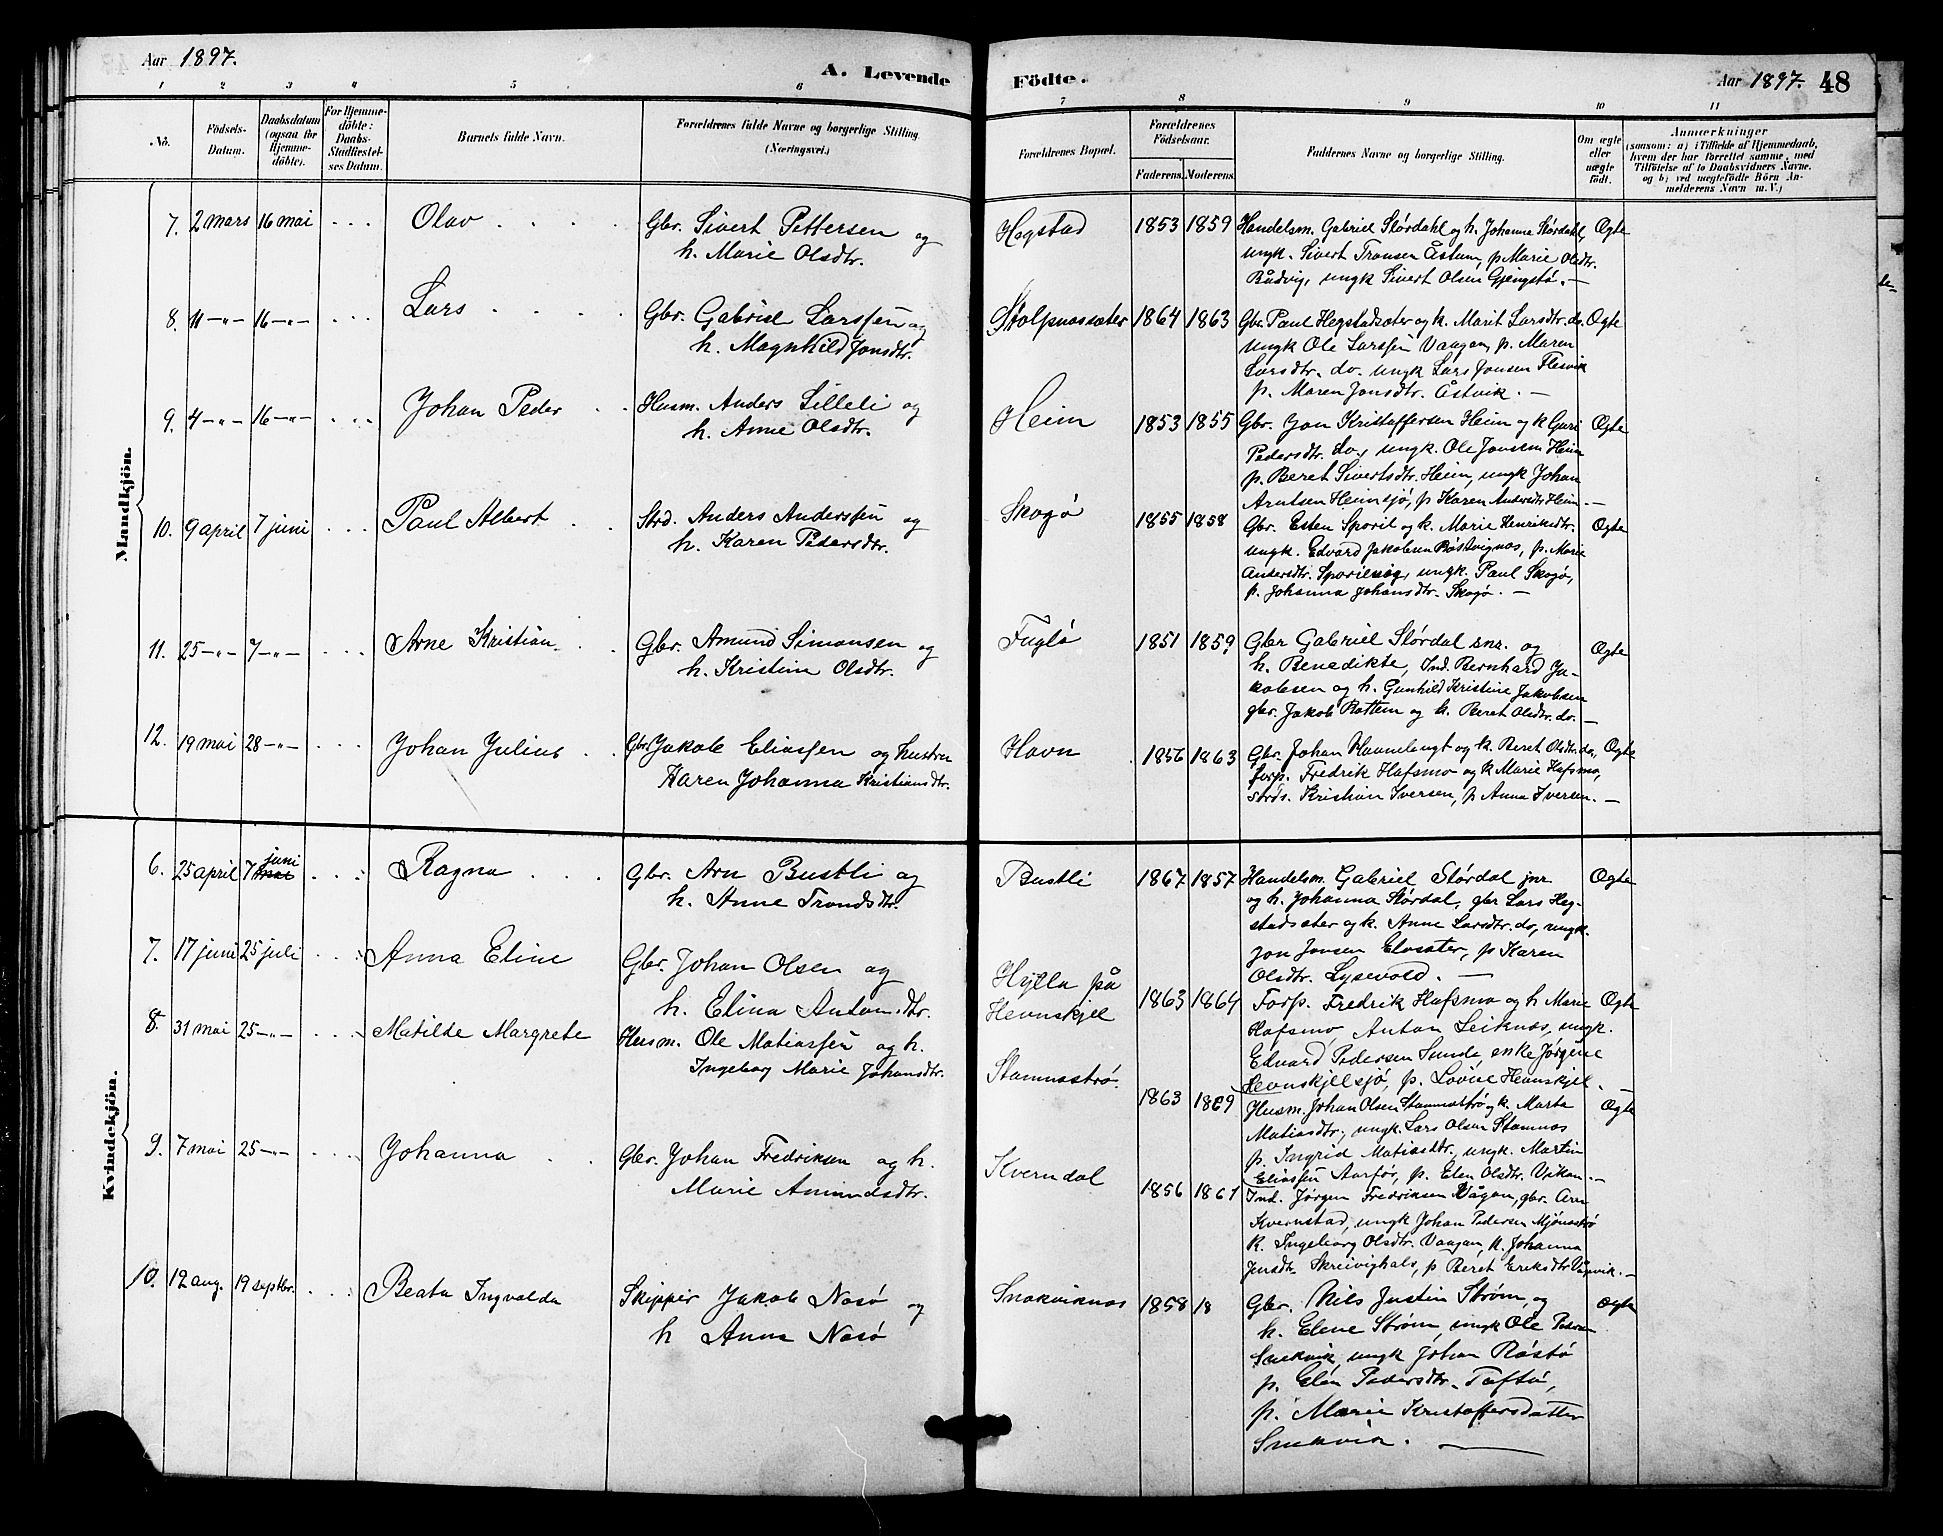 Aar 1897.
A. Levende
Födte.
Aar 1897.
48
1 2 3 4 5 6 7 8 9 10 11
No.
Födsels-
Datum.
Daabsdatum
(ogsaa for
Hjemme-
döbte).
For Hjemme-
döbte:
Daabs-
Stadfæstel-
ses Datum.
Barnets fulde Navn.
Forældrenes fulde Navne og borgerlige Stilling.
(Næringsvei.)
Forældrenes Bopæl.
Forældrenes
Födselsaar.
Faderens. Moderens.
Faddernes Navne og borgerlige Stilling.
Om ægte
eller
uægte
födt.
Anmærkninger
(saasom: a) i Tilfælde af Hjemmedaab,
hvem der har forrettet samme, med
Tilföielse af to Daabsvidners Navne.
og b) ved uægtefödte Börn An-
melderens Navn m. V.)
Mandkjön.
7. 2 mars 16 mai Olav
Gbr. Sivert Pettersen og
h. Marie Olsdtr.
Hegstad 1853 1859
Handelsm. Gabriel Størdahl og h. Johanna Størdahl,
ungk. Sivert Tronsen Åstum, p. Marie Olsdtr.
Bådvig, ungk Sivert Olsen Gjengstø. —
Ægte
8. 11 —„— 16 —„— Lars
Gbr. Gabriel Larssen og
h. Magnhild Jonsdtr.
Stolpnessæter 1864 1863
Gbr. Paul Hegstadsæter og k. Marit Larsdtr. do.
ungk Ole Larssen Vaagan, p. Maren
Larsdtr. do. ungk Lars Jonsen Flesvik
p. Maren Jonsdtr. Åstvik. —
Ægte
9. 4 —„— 16 —„— Johan Peder
Husm. Anders Lilleli og
h. Anne Olsdtr.
Heim 1853 1855
Gbr. Jon Kristoffersen Heim og k Guri
Pedersdtr. do, ungk. Ole Jonsen Heim
p. Beret Sivertsdtr. Heim, ungk Johan
Arntsen Heimsjø, p Karen Andersdtr Heim. —
Ægte
10. 9 april 7 juni Paul Albert
Strd. Anders Anderssen og
h. Karen Pedersdtr.
Skogø 1855 1858
Gbr. Esten Sporil og k. Marie Henriksdtr.
ungk. Edvard Jakobsen Røstvignes, p. Marie
Andersdtr. ungk. Paul Skogø,
p. Johanna Johansdtr. Skogø. —
Ægte
11. 25 —„— 7 —„— Arne Kristian
Gbr. Amund Simonsen og
h. Kristine Olsdtr.
Fuglø 1851 1859
Gbr Gabriel Størdal snr. og
h. Benedikte, Ind. Bernhard Ja-
kobsen og h. Gunhild Kristine Jakobsen
gbr. Jakob Rottem og k. Beret Olsdtr. do. —
Ægte
12. 19 mai 28 —„— Johan Julius
Gbr. Jakob Eliassen og hustru
Karen Johanna Kristiansdtr.
Havn 1856 1863
Gbr. Johan og k. Beret Olsdtr. do.
forp. Fredrik Hafsmo og k Marie Hafsmo,
strds. Kristian Iversen, p Anna Iversen. —
Ægte
Kvindekjön.
6. 25 april 7 juni mai Ragna
Gbr. Arn Bustli og
h. Anne Trondsdtr.
Bustli 1867 1857
Handelsm. Gabriel Størdal jnr.
og h. Johanna Størdal, gbr Lars Heg-
stadsæter og k. Anne Larsdtr. do, ungk.
Jon Jonsen Elvsæter, p Karen
Olsdtr. Lysevold. —
Ægte
7. 17 juni 25 juli Anna Eline
Gbr. Johan Olsen og
h. Elina Antonsdtr.
Hylla på
Hevnskjel
1863 1864
Forp. Fredrik Hafsmo og h Marie
Hafsmo, Anton Leiknes, ungk.
Edvard Pedersen Sunde, enke Jørgine
Hevnskjelsjø, p. Lovise Hevnskjel. —
Ægte
8. 31 mai 25 —„— Matilde Margrete
Husm. Ole Matiassen og h.
Ingeborg Marie Johansdtr.
Stamnestrø. 1863 1869
Husm. Johan Olsen Stamnestrø og k. Marta
Matiasdtr, ungk. Lars Olsen Stamnes
p. Ingrid Matiasdtr, ungk. Martin
Eliassen Aarfør, p. Elen Olsdtr. Vikan. —
Ægte
9. 7 mai 25 —„— Johanna
Gbr. Johan Fredriksen og h.
Marie Amundsdtr.
Kverndal 1856 1861
Ind. Jørgen Fredriksen Vågan, gbr. Arn
Kvernstad, ungk Johan Pedersen Mjønestrø
k. Ingeborg Olsdtr. Vaagan, k. Johanna
Jensdtr. Skreivighals, p Beret Eriksdtr Vågvik. —
10. 12 aug. 19 septbr. Beata Ingvalda
Skipper Jakob Nesø og
h Anna Nesø
Snekviknes 1858 18
Gbr. Nils Justin Strøm, og
h. Elene Strøm, ungk Ole Peters
Snekvik, ungk Johan Røstø
p. Elen Pedersdtr. Tøftø,
p. Marie Kristoffersdatter
Snekvik. —
Ægte